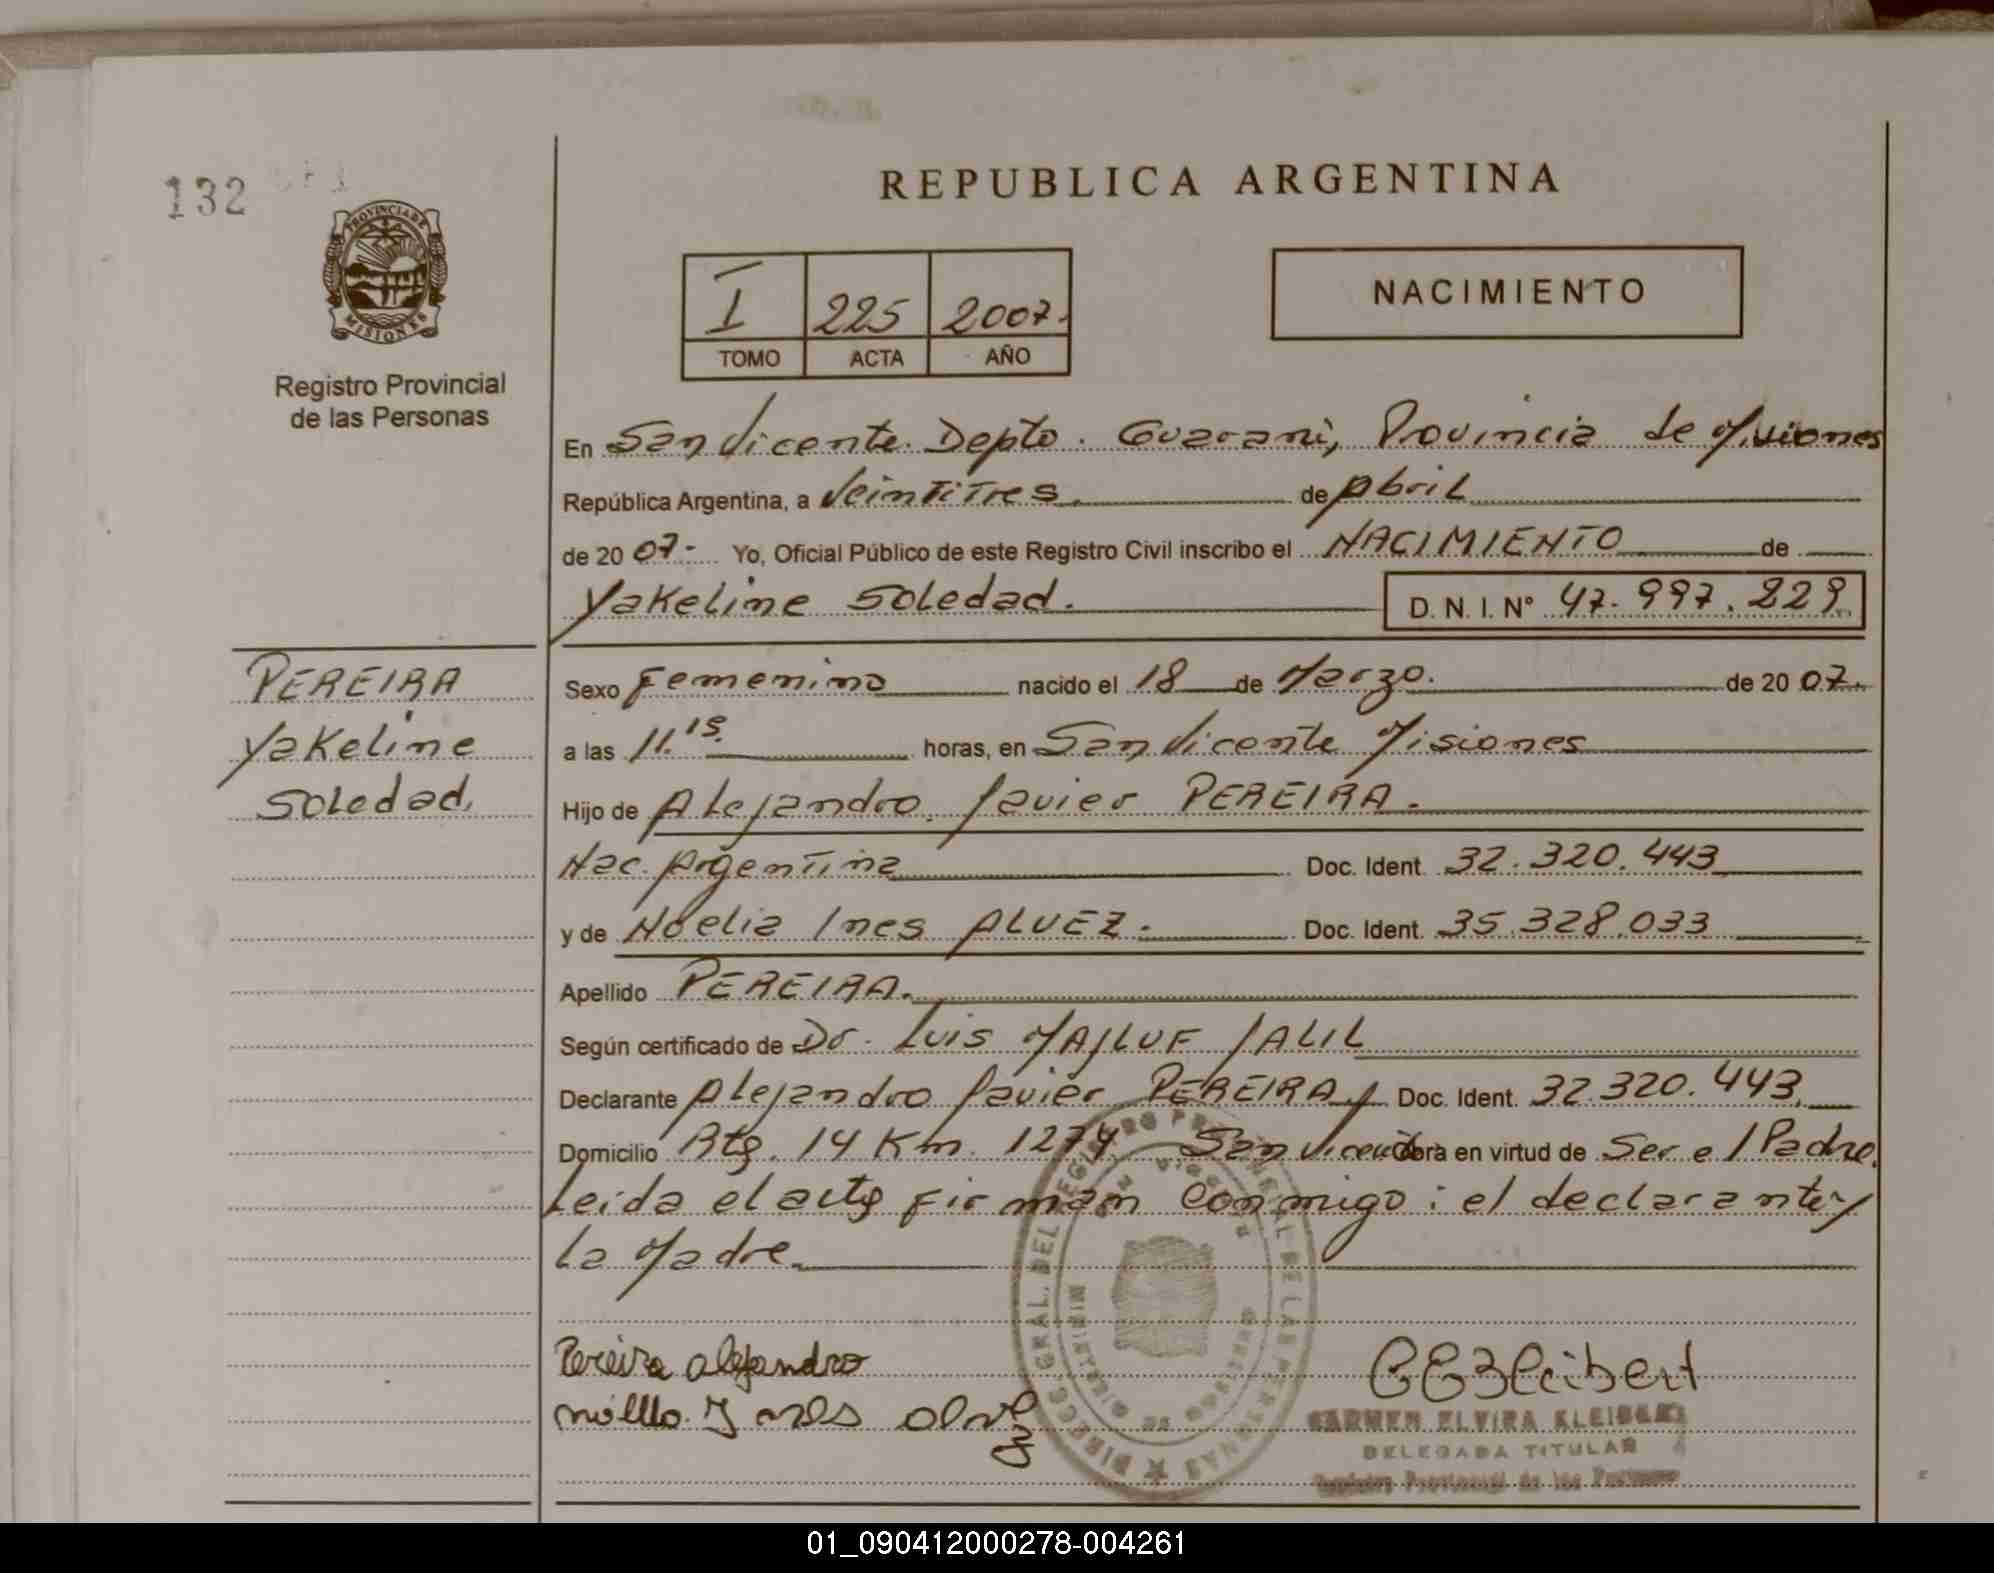 132
REPUBLICA ARGENTINA
PROVINCIA DE
MISIONES
Registro Provincial
de las Personas
I 225 2007.
TOMO ACTA AÑO
NACIMIENTO
En San Vicente. Depto. Guarani, Provincia de Misiones
República Argentina, a Veintitres. de Abril
de 20 07- Yo, Oficial Público de este Registro Civil inscribo el NACIMIENTO de
Yakeline Soledad. D. N. I. Nº 47.997.229.
PEREIRA
Yakeline
Soledad.
Sexo Femenino nacido el 18 de Marzo. de 20 07.
a las 11.15. horas, en San Vicente Misiones
Hijo de Alejandro Javier PEREIRA.
Nac. Argentina Doc. Ident. 32.320.443
y de Noelia Ines ALVEZ. Doc. Ident. 35.328.033
Apellido PEREIRA.
Según certificado de Dr. Luis MAJLUF JALIL
Declarante Alejandro Javier PEREIRA Doc. Ident. 32.320.443.
Domicilio Rtg. 14 Km. 1274 San Vicente Obra en virtud de Ser el Padre.
Leida el acta firman conmigo: el declarante y
la Madre.
Pereira alejandro
CARMEN ELVIRA KLEIBERT
DELEGADA TITULAR
Registro Provincial de las Personas
DIRECC. GRAL. DEL REGISTRO PROVINCIAL DE LAS PERSONAS
MINISTERIO DE GOBIERNO
01_090412000278-004261